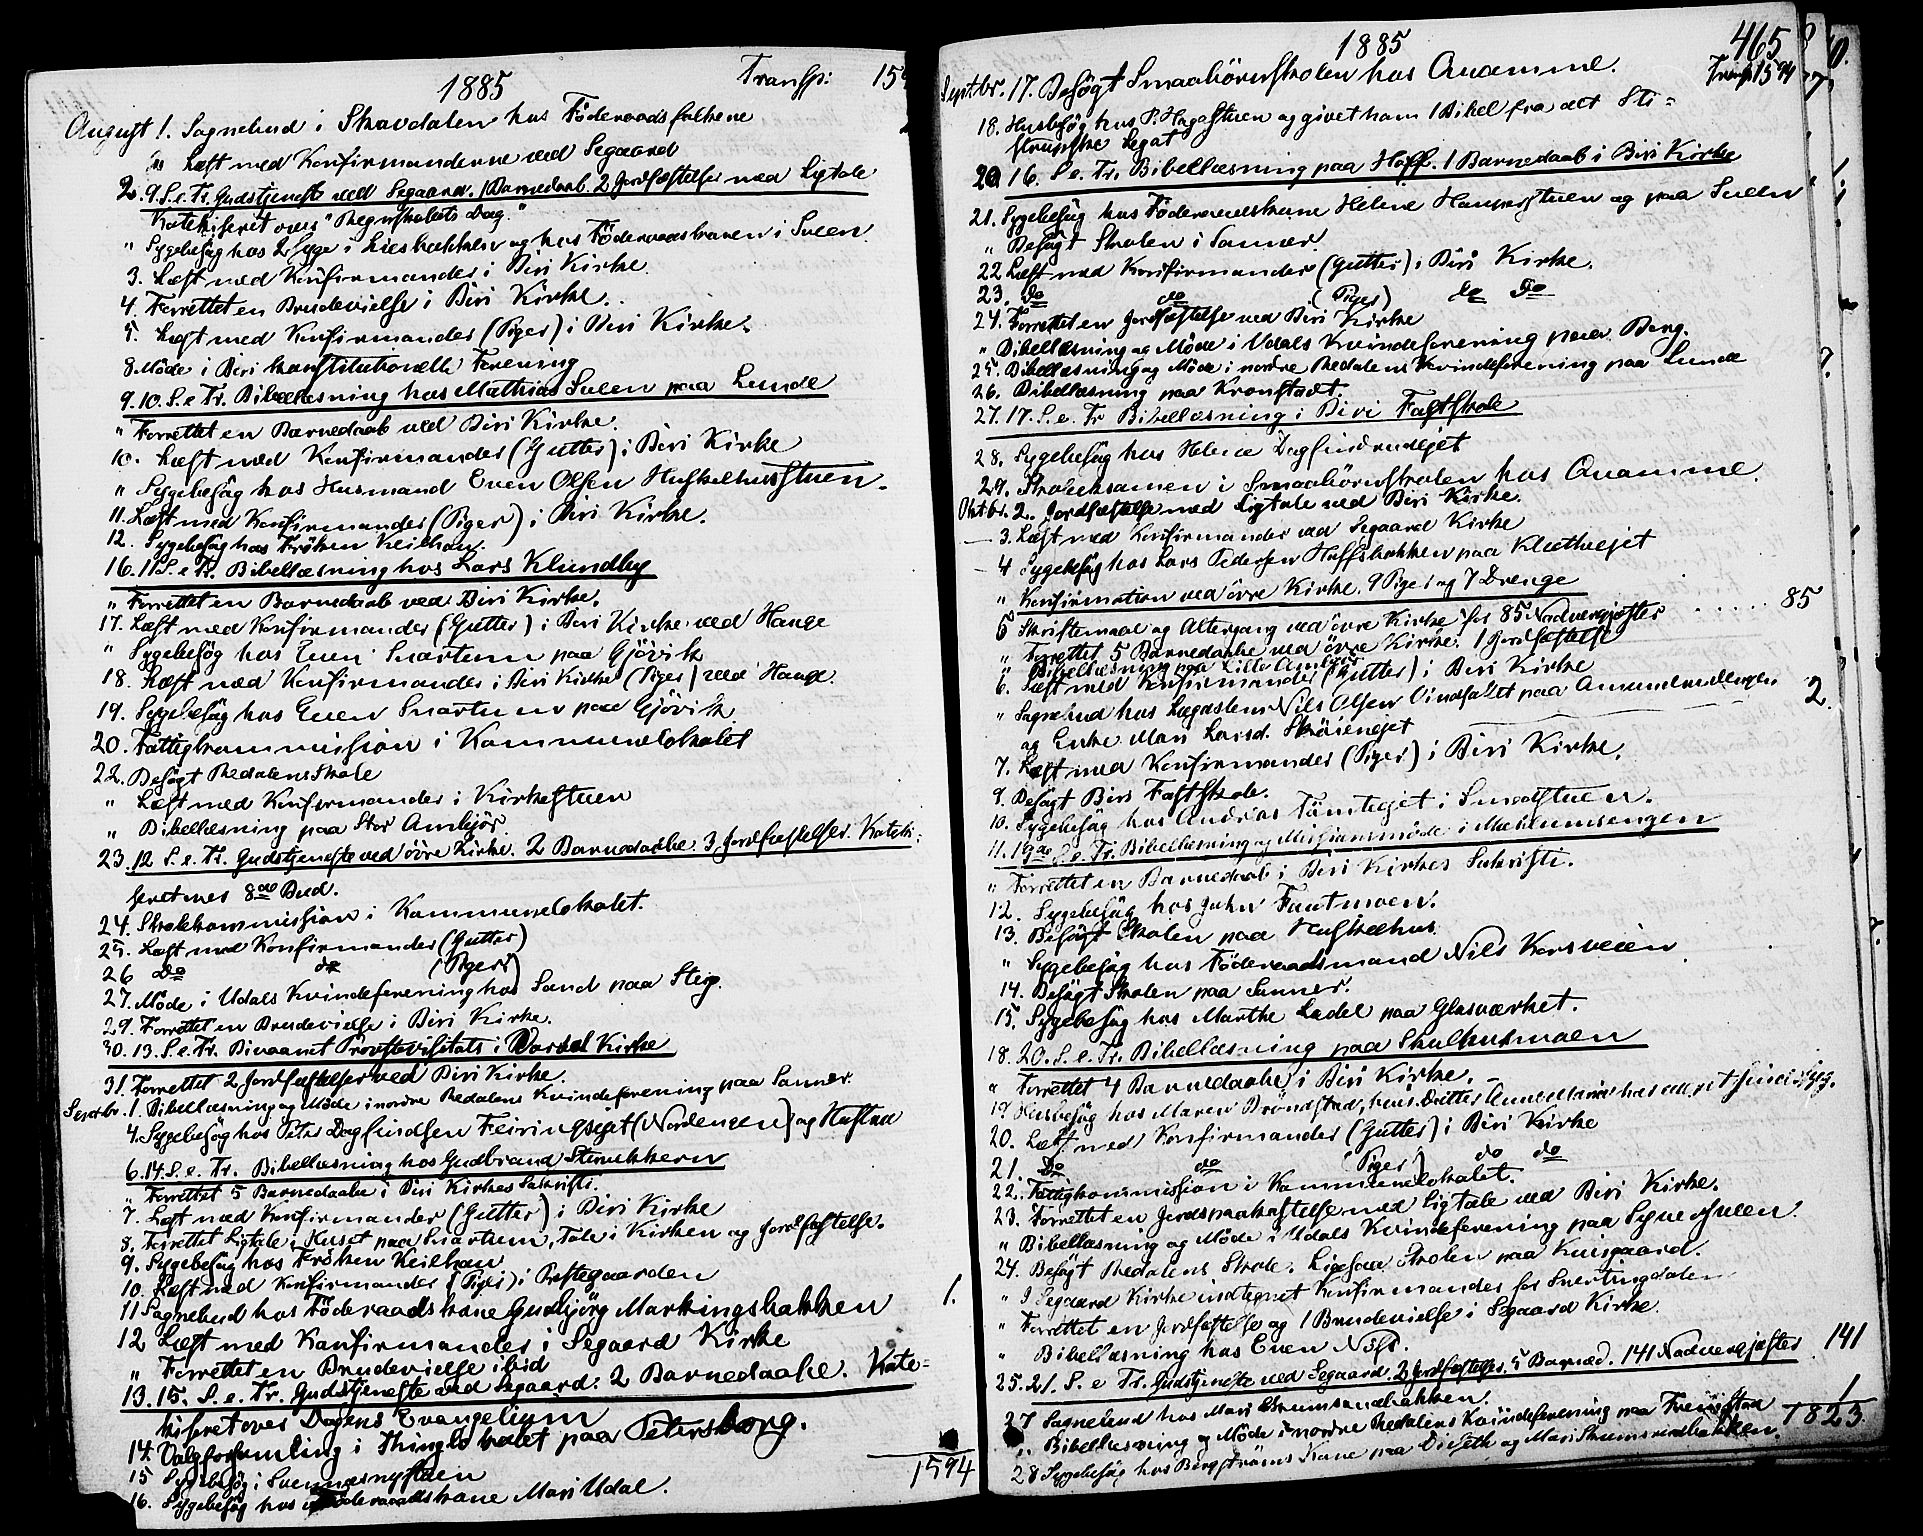 1885 Transp: 159
August 1. Sognebud i Skavdalen hos Föderaadsfolkene
" Læst med Konfirmanderne ved Segaard
2. 9. S. e. Tr. Gudstjeneste ved Segaard. 1 Barnedaab. 2 Jordfæstelser med Ligtale
Katekiseret over "Regnskabets Dag."
" Sygebesög hos 2 Syge i Liesbakken og hos Föderaadskonen i Sveen
3. Læst med Konfirmander i Biri Kirke.
4. Forrettet en Brudevielse i Biri Kirke.
5. Læst med Konfirmander (Piger) i Biri Kirke.
8 Möde i Biri konstitutionelle Forening
9. 10. S. e. Tr. Bibellæsning hos Mathias Sveen paa Lunde
" Forrettet en Barnedaab ved Biri Kirke.
10. Læst med Konfirmander (Gutter) i Biri Kirke
" Sygebesög hos Husmand Even Olsen Huskelhusstuen.
11. Læst med Konfirmander (Piger) i Biri Kirke.
12. Sygebesög hos Fröken Keilhau.
16. 11 S. e. Tr. Bibellæsning hos Lars Klundby
" Forrettet en Barnedaab ved Biri Kirke.
17. Læst med Konfirmander (Gutter) i Biri Kirke ved Hauge
" Sygebesög hos Even Snartum paa Gjövik
18. Læst med Konfirmander i Biri Kirke (Piger) ved Hauge.
19. Sygebesög hos Even Snartum paa Gjövik
20. Fattigkommission i Kommunelokalet
22. Besögt Redalens Skole
" Læst med Konfirmander i Kirkestuen
" Bibellæsning paa Stor Amlijör
23. 12 S. e. Tr. Gudstjeneste ved övre Kirke. 2 Barnedaabe. 3 Jordfæstelser. Kateki-
seret over 8de Bud.
24. Skolekommission i Kommunelokalet.
25. Læst med Konfirmander (Gutter)
26 Do do (Piger)
27. Möde i Udals Kvindeforening hos Sand paa Stig.
29. Forrettet en Brudevielse i Biri Kirke.
30. 13. S. e. Tr. Bivaanet Provstevisitats i Vardal Kirke
31. Forrettet 2 Jordfæstelser ved Biri Kirke.
Septbr. 1. Bibellæsning og Möde i nordre Redalens Kvindeforening paa Sanner.
4. Sygebesög hos Peter Dagfindsen Feiringsejet (Nordengen) og Hustad
6. 14. S. e. Tr. Bibellæsning hos Gudbrand Stenbekken
" Forrettet 5 Barnedaabe i Biri Kirkes Sakristi.
7. Læst med Konfirmander (Gutter) i Biri Kirke
8. Forrettet Ligtale i Huset paa Snartum, Tale i Kirken og Jordfæstelse.
9. Sygebesög hos Fröken Keilhau
10. Læst med Konfirmander (Piger) i Prestegaarden
11 Sognebud hos Föderaadskone Gudbjörg Markingsbakken 1.
12 Læst med Konfirmander i Segaard Kirke
" Forrettet en Brudevielse ibid
13. 15. S. e. Tr. Gudstjeneste ved Segaard. 2 Barnedaabe. Kate-
kiseret over Dagens Evangelium
14. Valgforsamling i Thinglokalet paa Petersborg.
15 Sygebesög i Svennesnystuen
16. Sygebesög hos Föderaadskone Mari Udal.
1594
1885 465
Septbr. 17. Besögt Smaabörnskolen hos Onamme. Transp 1594
18. Husbesög hos P. Hagastuen og givet ham 1 Bibel fra det Sti-
strupske Legat
20 16. S. e. Tr. Bibellæsning paa Hoff. 1 Barnedaab i Biri Kirke
21. Sygebesög hos Föderaadskone Helene Hampestuen og paa Sveen
" Besögt Skolen i Sanner
22 Læst med Konfirmander (Gutter) i Biri Kirke.
23. Do do (Piger) do Do
24. Forrettet en Jordfæstelse ved Biri Kirke
" Bibellæsning og Möde i Udals Kvindeforening paa Berg.
25. Bibellæsning og Möde i nordre Redalens Kvindeforening paa Lunde
26. Bibellæsning paa Kronstadt.
27. 17. S. e. Tr Bibellæsning i Biri Fastskole
28. Sygebesög hos Helene Dagfindrudejet
29. Skoleeksamen i Smaabörnskolen hos Onamme
Oktbr. 2. Jordfæstelse med Ligtale ved Biri Kirke.
3. Læst med Konfirmander ved Segaard Kirke
4 Sygebesög hos Lars Pedersen Hoffsbakken paa Klethejet
" Konfirmation ved övre Kirke. 9 Piger og 7 Drenge
5 Skriftemaal og Altergang ved övre Kirke for 85 Nadvergjester ..... 85
" Forrettet 5 Barnedaabe ved övre Kirke. 1 Jordfæstelse
" Bibellæsning paa Lille Amlijör
6. Læst med Konfirmander (Gutter) i Biri Kirke
" Sognebud hos Lægdslem Nils Olsen Vindfaldet paa Amundrudengen 2.
og Enke Mari Larsd. Skröienejet
7. Læst med Konfirmander (Piger) i Biri Kirke.
9. Besögt Biri Fastskole.
10. Sygebesög hos Andrias Tömtejet i Smedstuen.
11. 19de S. e. Tr. Bibellæsning og Missionsmöde i Mæhlumsengen
" Forrettet en Barnedaab i Biri Kirkes Sakristi.
12. Sygebesög hos John Fautmoen.
13. Besögt Skolen paa Huskelhus
" Sygebesög hos Föderaadsmand Nils Korsveien
14. Besögt Skolen paa Sanner.
15. Sygebesög hos Marthe Ladel paa Glasværket.
18. 20. S. e. Tr. Bibellæsning paa Skulhusmoen
" Forrettet 4 Barnedaabe i Biri Kirke.
19. Husbesög hos Maren Bröndstad, hvis Datter Annemarie har
20. Læst med Konfirmander (Gutter) i Biri Kirke
21. Do do (Piger) do do
22. Fattigkommission i Kommunelokalet.
23. Forrettet en Jordspaakastelse med Ligtale ved Biri Kirke.
" Bibellæsning og Möde i Udals Kvindeforening paa Synersveen.
24. Besögt Redalens Skole. Ligesaa Skolen paa Kvisgaard.
" I Segaard Kirke indtegnet Konfirmander for Snertingdalen
" Forrettet en Jordfæstelse og 1 Brudevielse i Segaard Kirke.
" Bibellæsning hos Even
25. 21. S. e Tr. Gudstjeneste ved Segaard. 2 Jordfæstelser. 5 Barned. 141 Nadvergjester 141
27 Sognebud hos Mari Skrumsrudbakken. 1
" Bibellæsning og Möde i nordre Redalens Kvindeforening paa Freng
28 Sygebesög hos Bergströms Kone paa Viseth og Mari Skrumsrudbakken. 1823.